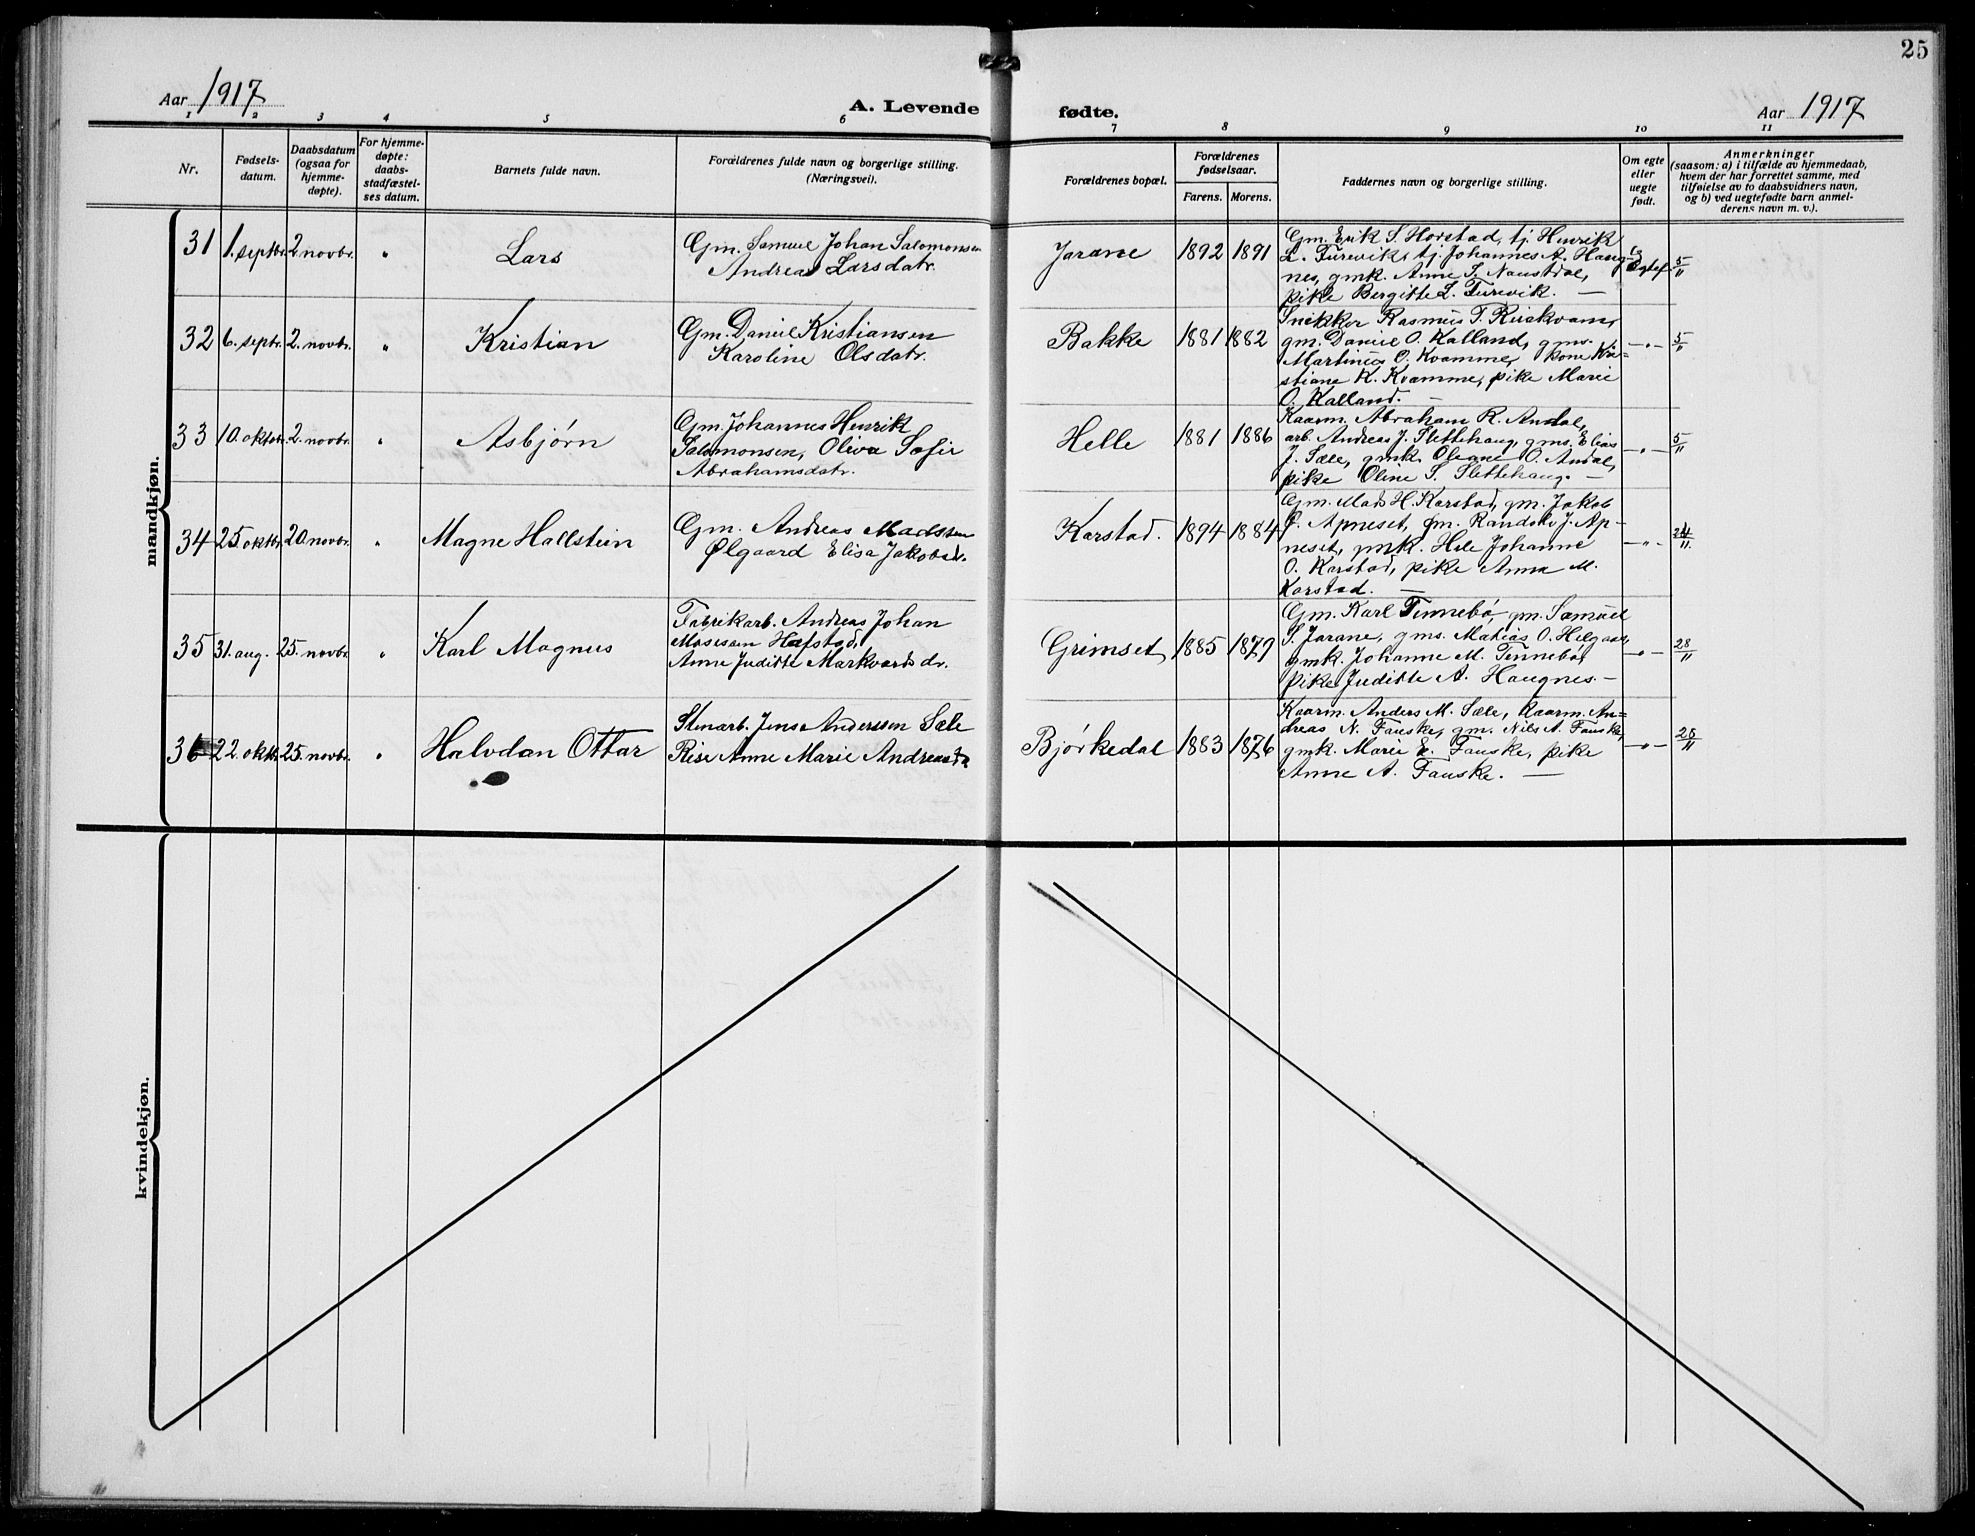 25
Aar 1917
A. Levende
fødte.
Aar 1917
1 2 3 4 5 6 7 8 9 10 11
Nr.
Fødsels-
datum.
Daabsdatum
(ogsaa for
hjemme-
døpte).
For hjemme-
døpte:
daabs-
stadfæstel-
ses datum.
Barnets fulde navn.
Forældrenes fulde navn og borgerlige stilling.
(Næringsvei).
Forældrenes bopæl.
Forældrenes
fødselsaar.
Farens. Morens.
Faddernes navn og borgerlige stilling.
Om egte
eller
uegte
født.
Anmerkninger
(saasom: a) i tilfælde av hjemmedaab,
hvem der har forrettet samme, med
tilføielse av to daabsvidners navn,
og b) ved uegtefødte barn anmel-
derens navn m. v.).
mandkjøn.
31 1. septbr. 2. novbr. " Lars
Gm. Samuel Johan Salomonsen
Andrea Larsdatr.
Jarane 1892 1891
Gm. Erik S. Horstad, tj. Henrik
L. Turevik, tj. Johannes A. Haug-
nes, gmk. Anne S. Naustdal,
pike Bergitte L. Turevik. —
Egtef. 5/11
32 6. septr. 2. novbr. " Kristian
Gm. Daniel Kristiansen
Karoline Olsdatr.
Bakke 1881 1882
Snikker Rasmus T. Ruskvam,
gm. Daniel O. Kalland, gms.
Martinus O. Kvamme, kone Kri=
stiane K. Kvamme, pike Marie
O. Kalland. —
—"— 5/11
33 10. oktbr. 2. novbr. " Asbjørn
Gm. Johannes Henrik
Salomonsen, Oliva Sofie
Abrahamsdatr.
Helle 1881 1886
Kaarm. Abraham R. Andal,
arb. Andreas J. Slettehaug, gms. Elias
J. Sæle, gmk. Oleane O. Andal,
pike Oline S. Slettehaug. —
—"— 5/11
34 25. oktbr. 20. novbr. " Magne Hallstein
Gm. Andreas Madssen
Ølgaard Elisa Jakobsdr.
Karstad. 1894 1884
Gm. Mads H. Karstad, gm. Jakob
Ø. Apneset, gm. Randolv J. Ap-
neset, gmk. Hele Johanne
O. Karstad, pike Anna M.
Karstad. —
—"— 24/11
35 31. aug. 25. novbr. " Karl Magnus
Fabrikarb. Andreas Johan
Mosesen Hafstad,
Anne Juditte Markvardsdr.
Grimset, 1885 1879
Gm. Karl Tinnebø, gm. Samuel
S. Jarane, gms. Matias O. Helgaas,
gmk. Johanne M. Tinnebø,
pike Juditte A. Haugnes. —
—"— 28/11
36 22. oktbr. 25. novbr. " Halvdan Ottar
Stenarb. Jens Anderssen Sæle
Risi Anne Marie Andreasdr
Bjørkedal 1883 1876
Kaarm. Anders M. Sæle, Kaarm. An=
dreas N. Fauske, gm. Nils A. Fauske,
gmk. Marie E. Fauske, pike
Anne A. Fauske. —
—"— 28/11
kvindekjøn.